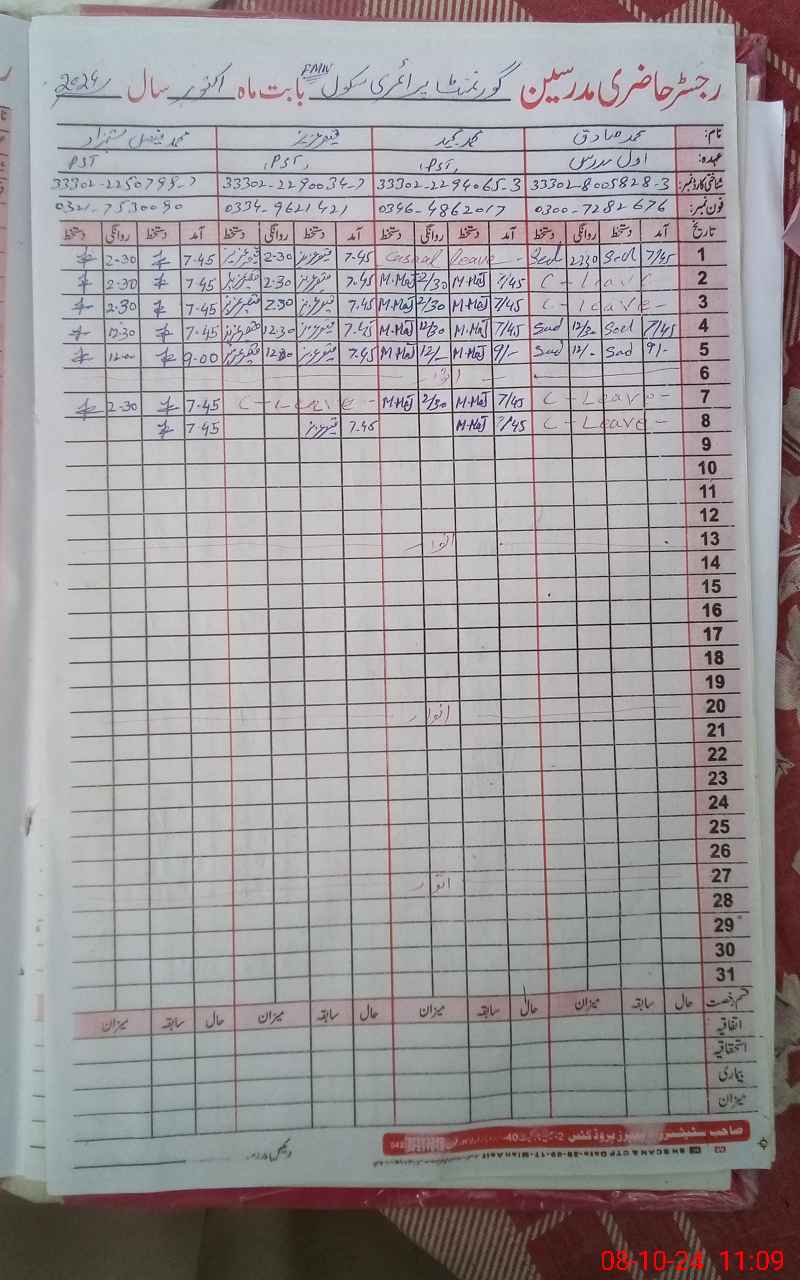 رجسٹر حاضری مدرسین گورنمنٹ پرائمری سکول بابت ماہ اکتوبر سال 2024
نام: محمد صادق محمد مجید محمد فیصل شہزاد
عہدہ: اول مدرس PST, PST, PST
شناختی کارڈ نمبر: 33302-8005828-3 33302-2294065-3 33302-2290034-7 33302-2250798-7
فون نمبر: 0300-7282676 0346-4862017 0334-9621421 0321-7530090
تاریخ آمد دستخط روانگی دستخط آمد دستخط روانگی دستخط آمد دستخط روانگی دستخط آمد دستخط روانگی دستخط
1 7/45 Sad 2/30 Sad Casual Leave - 7.45 2.30 7.45 2.30
2 C - Leave 7/45 M.Maj 2/30 M.Maj 7.45 2.30 7.45 2.30
3 C - Leave - 7/45 M.Maj 2/30 M.Maj 7.45 2.30 7.45 2.30
4 7/45 Sad 12/30 Sad 7/45 M.Maj 12/30 M.Maj 7.45 12.30 7.45 12.30
5 9/- Sad 12/- Sad 9/- M.Maj 12/- M.Maj 7.45 9.00
6 اتوار
7 C - Leave - 7/45 M.Maj 2/30 M.Maj C - Leave - 7.45 2.30
8 C - Leave - 7/45 M.Maj 7.45 7.45
9
10
11
12
13 اتوار
14
15
16
17
18
19
20 اتوار
21
22
23
24
25
26
27 اتوار
28
29
30
31
قسم رخصت حال سابقہ میزان حال سابقہ میزان حال سابقہ میزان حال سابقہ میزان
اتفاقیہ
استحقاقیہ
بیماری
میزان
08-10-24 11:09